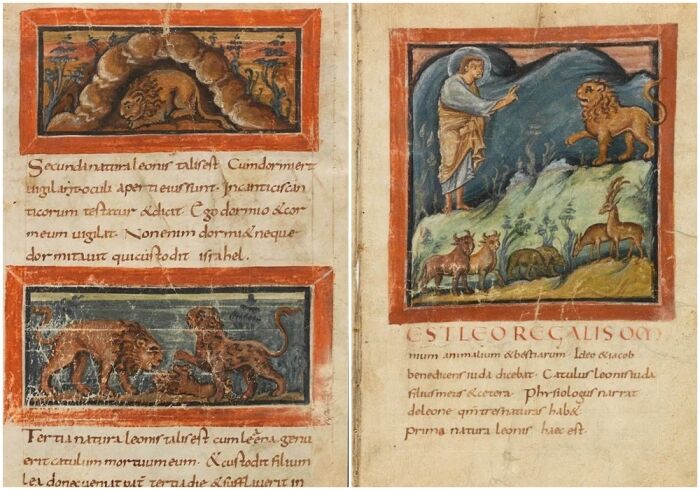 Secunda natura leonis talis est. Cum dormierit
vigilant oculi aperti eius sunt. In canticis can
ticorum testatur & dicit. Ego dormio & cor
meum vigilat. Non enim dormi& neque
dormitauit qui custodit israhel.
Tertia natura leonis talis est cum leena genu
erit catulum mortuum eum. & custodit filium
lea donec veniat pat̄ tertia die & sufflauerit in
EST LEO REGALIS OM
nium animalium & bestiarum. Ideo & iacob
benedicens iuda dicebat. Catulus leonis iuda
filius meus & cetera. Phisiologus narrat
de leone qm̄ tres naturas hab&
prima natura leonis haec est.